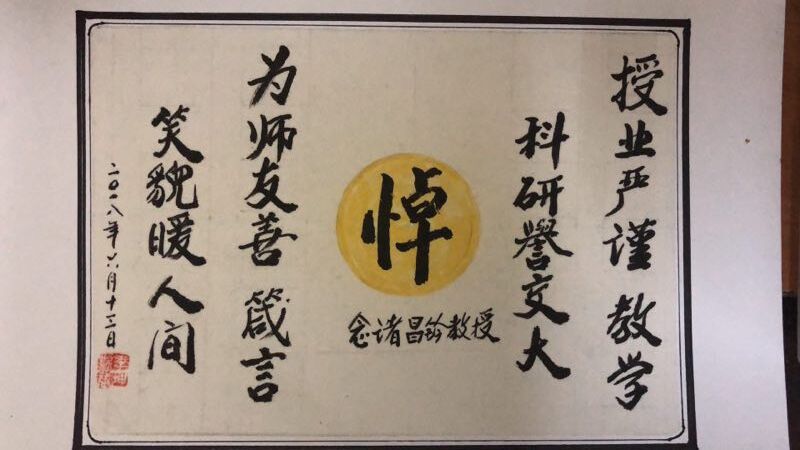 授业严谨 教学
科研誉交大
悼
念诸昌钤教授
为师友善 箴言
笑貌暖人间
二〇一八年六月十三日